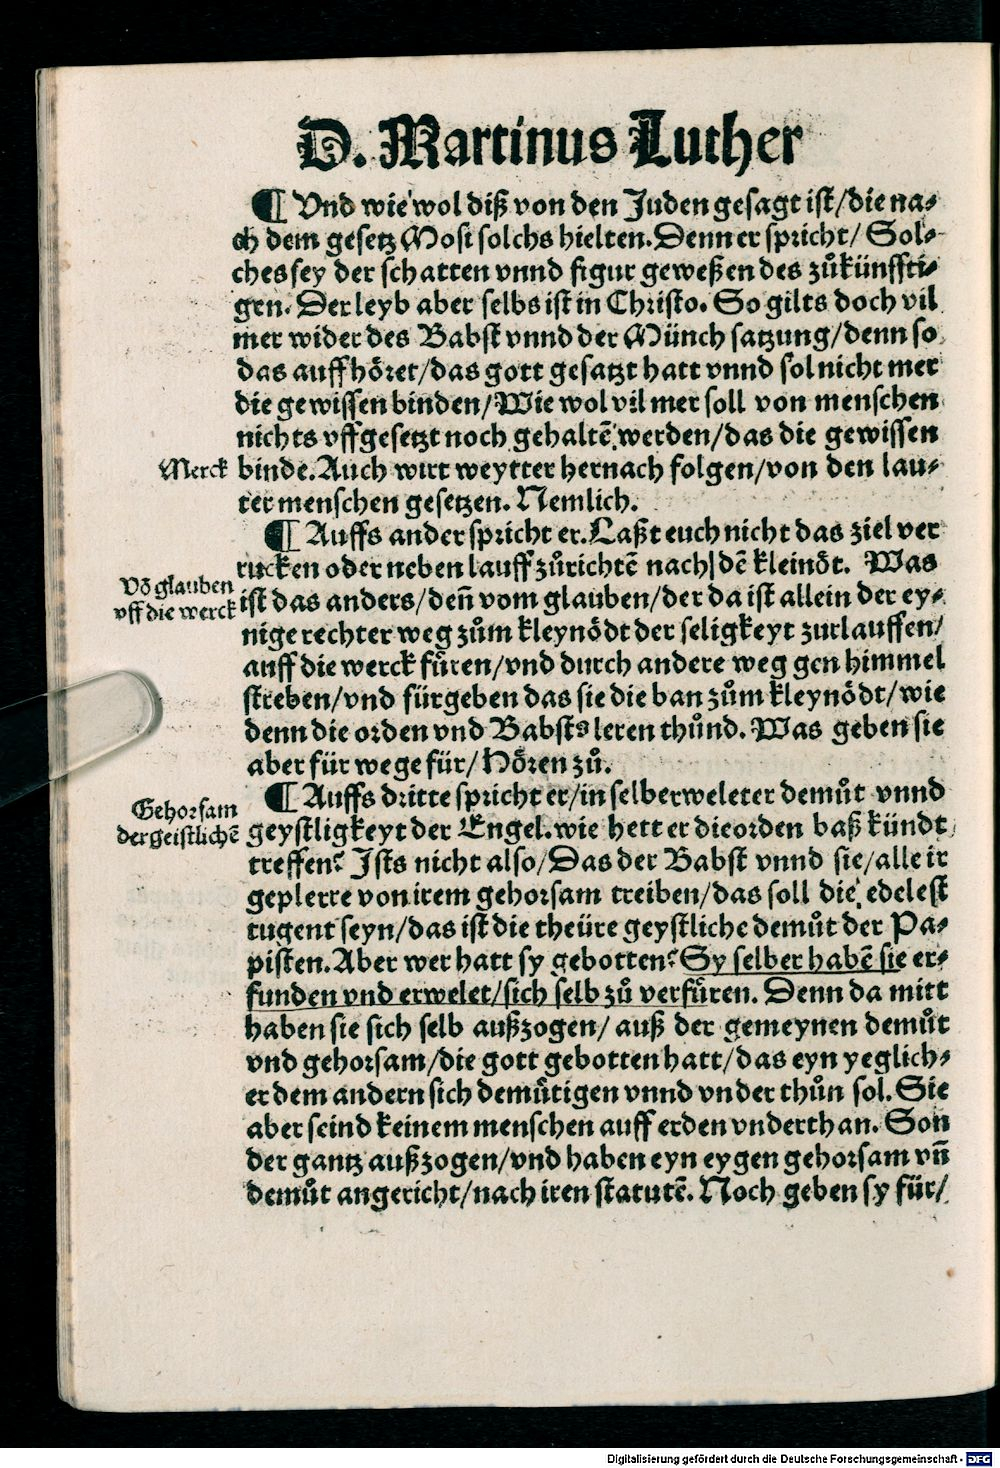 D. Martinus Luther
¶ Vnd wie wol diß von den Juden gesagt ist/die na⸗
ch dem gesetz Mosi solchs hielten. Denn er spricht/ Sol⸗
ches sey der schatten vnnd figur geweßen des zůkünffti⸗
gen. Der leyb aber selbs ist in Christo. So gilts doch vil
mer wider des Babst vnnd der Münch satzung/denn so
das auffhöret/das gott gesatzt hatt vnnd sol nicht mer
die gewissen binden/Wie wol vil mer soll von menschen
nichts vffgesetzt noch gehaltē werden/das die gewissen
Merck
binde. Auch wirt weytter hernach folgen/von den lau⸗
ter menschen gesetzen. Nemlich.
¶ Auffs ander spricht er. Laßt euch nicht das ziel ver
rucken oder neben lauff zůrichtē nach dē kleinöt. Was
Vō glauben
vff die werck
ist das anders/deñ vom glauben/der da ist allein der ey⸗
nige rechter weg zům kleynödt der seligkeyt zurlauffen/
auff die werck fůren/vnd durch andere weg gen himmel
streben/vnd fürgeben das sie die ban zům kleynödt/wie
denn die orden vnd Babsts leren thůnd. Was geben sie
aber für wege für/Hören zů.
¶ Auffs dritte spricht er/in selberweleter demůt vnnd
Gehorsam
der geistlichē
geystligkeyt der Engel. wie hett er die orden baß kündt
treffen? Ists nicht also/Das der Babst vnnd sie/alle ir
geplerre von irem gehorsam treiben/das soll die edelest
tugent seyn/das ist die theüre geystliche demůt der Pa⸗
pisten. Aber wer hatt sy gebotten? Sy selber habē sie er⸗
funden vnd erwelet/sich selb zů verfůren. Denn da mitt
haben sie sich selb außzogen/ auß der gemeynen demůt
vnd gehorsam/die gott gebotten hatt/das eyn yeglich⸗
er dem andern sich demůtigen vnnd vnder thůn sol. Sie
aber seind keinem menschen auff erden vnderthan. Son
der gantz außzogen/vnd haben eyn eygen gehorsam vñ
demůt angericht/nach iren statutē. Noch geben sy für/
Digitalisierung gefördert durch die Deutsche Forschungsgemeinschaft - DFG